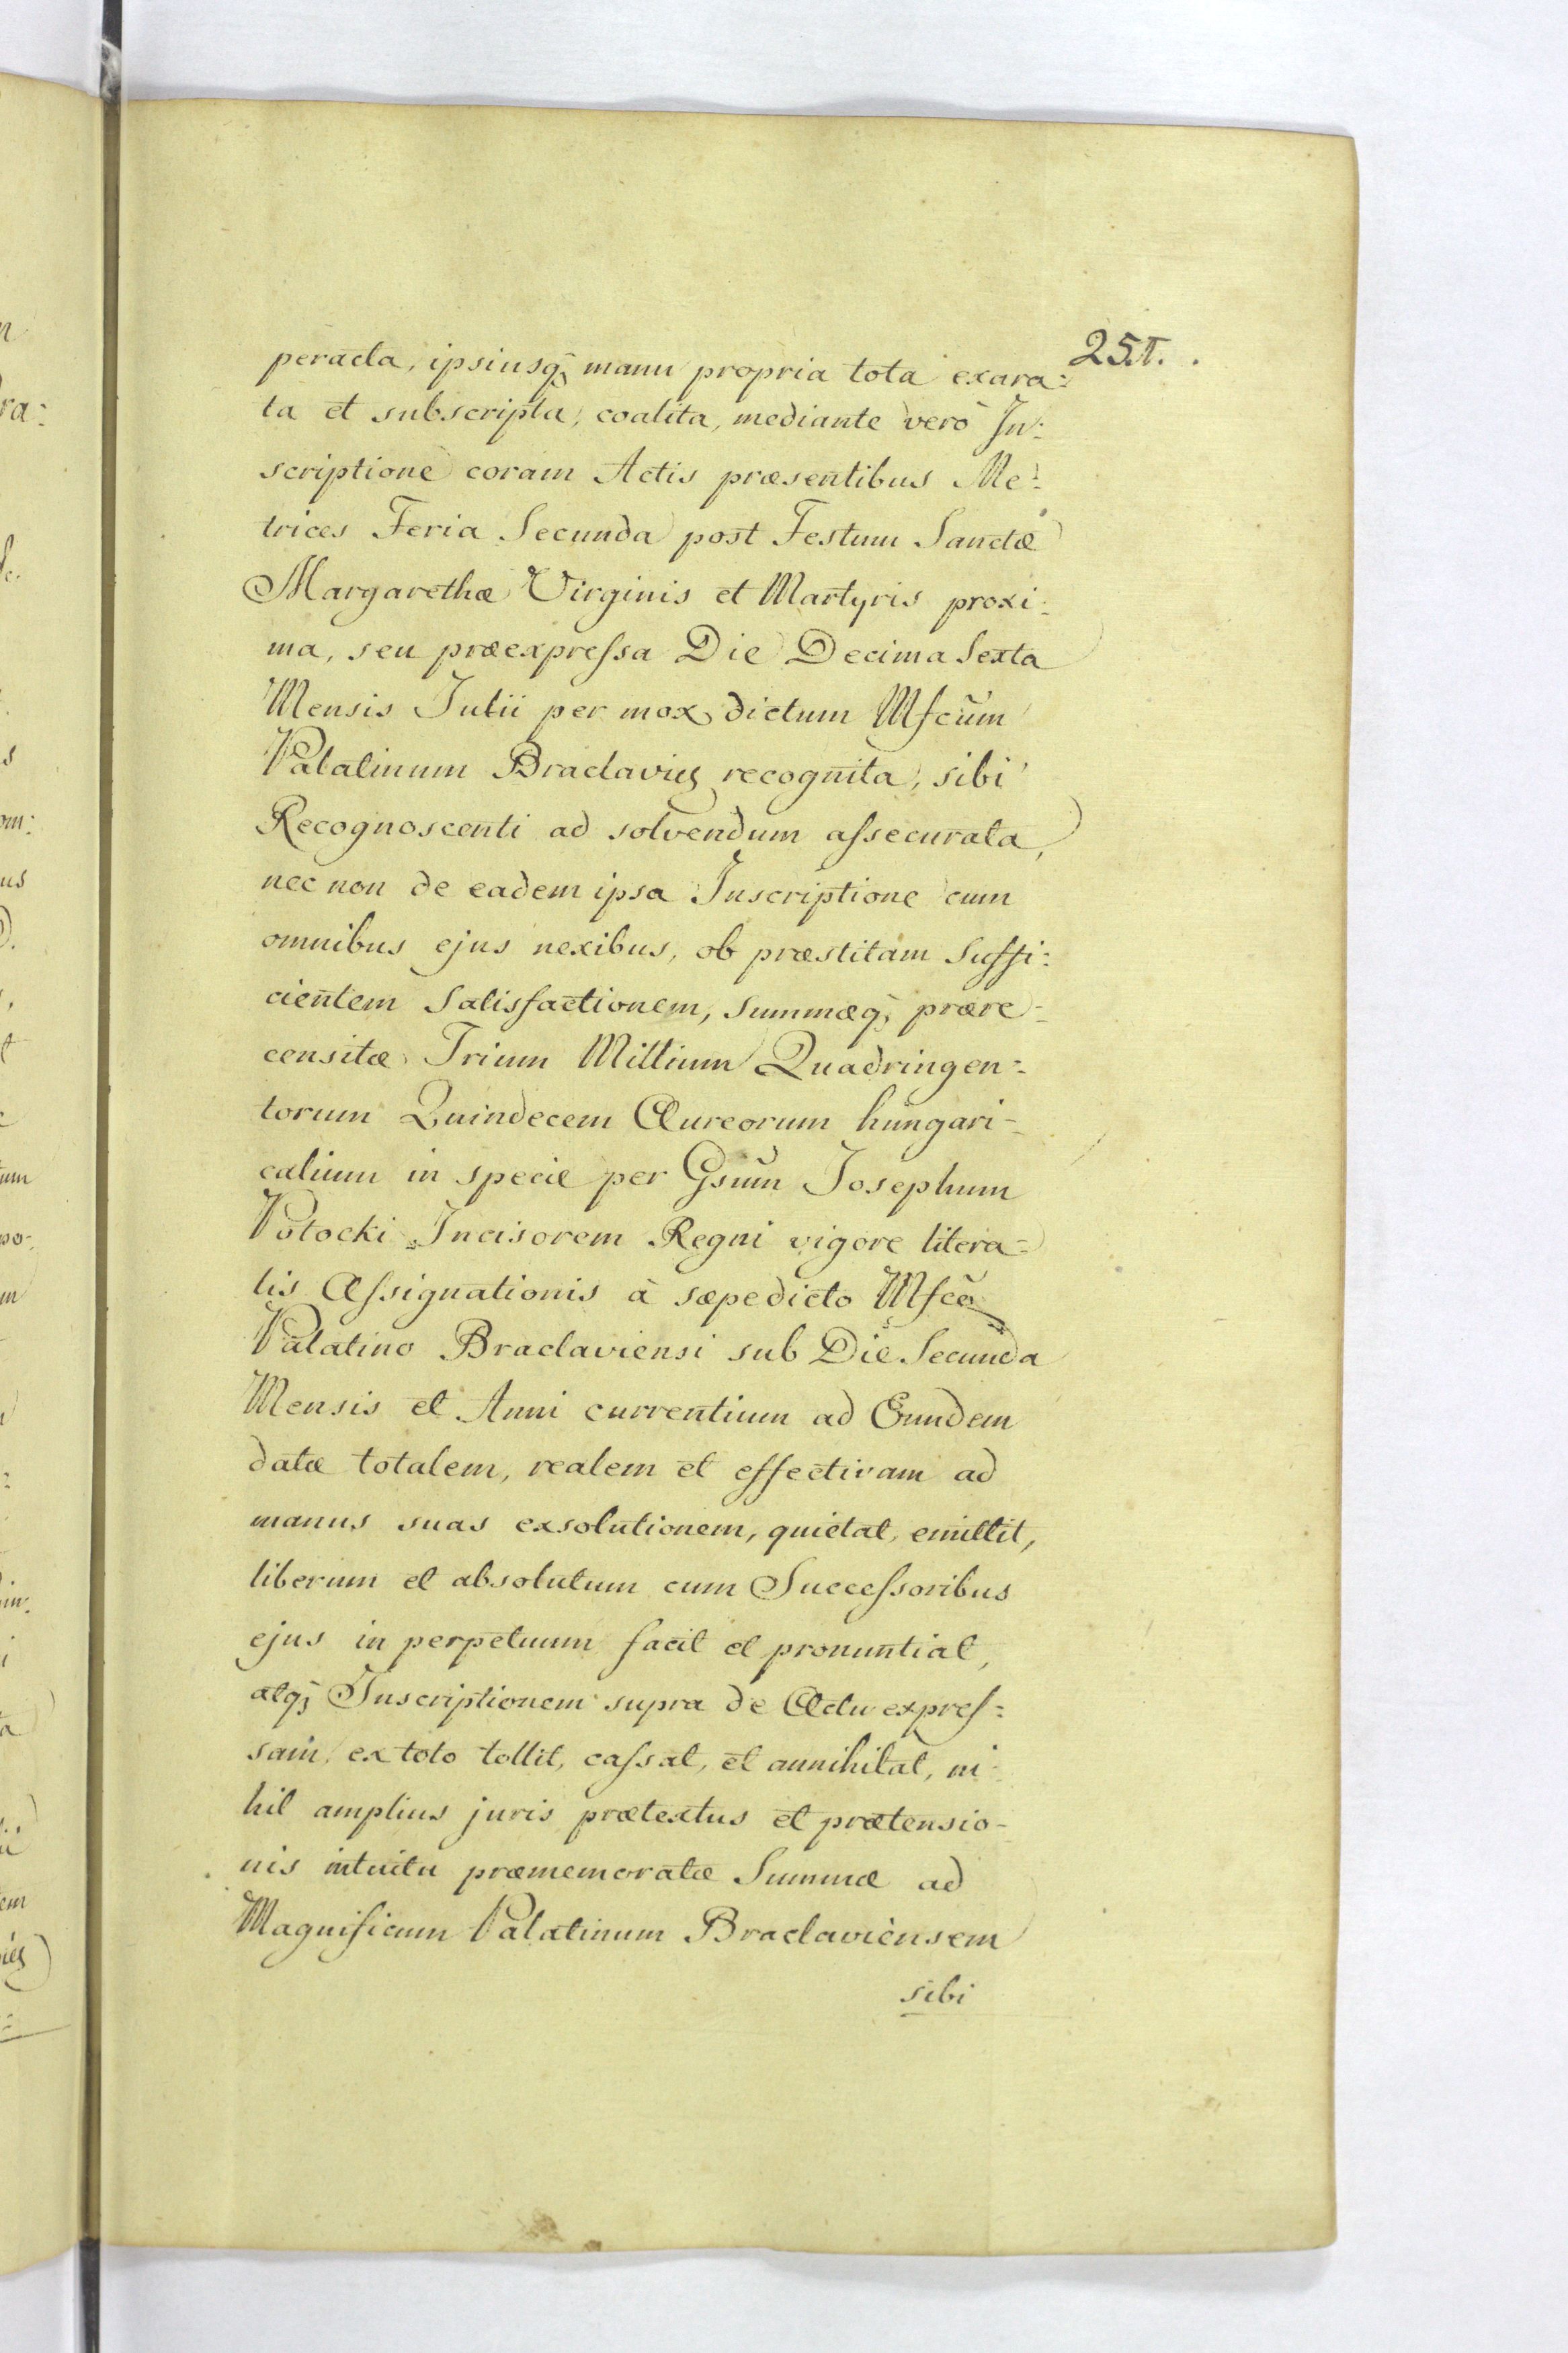 251.
peracta, ipsiusq; manu propria tota exara:
ta et subscripta, coalita, mediante verò In:
scriptione coram Actis præsentibus Me:
trices Feria Secunda post Festum Sanctæ
Margarethæ Virginis et Martyris proxi:
ma, seu præexpressa Die Decima Sexta
Mensis Julii per mox dictum Mfcum
Palatinum Braclavien recognita, sibi
Recognoscenti ad solvendum assecurata,
nec non de eadem ipsa Inscriptione cum
omnibus ejus nexibus, ob præstitam Suffi:
cientem Satisfactionem, Summæq; prære-
censitæ Trium Millium Quadringen:
torum Quindecem Aureorum hungari-
calium in specie per Gsum Josephum
Potocki Incisorem Regni vigore litera-
lis Assignationis à sæpedicto Mfco
Palatino Braclaviensi sub Die Secunda
Mensis et Anni currentium ad Eundem
datæ totalem, realem et effectivam ad
manus suas exsolutionem, quietat, emittit,
liberum et absolutum cum Successoribus
ejus in perpetuum facit et pronuntiat,
atq; Inscriptionem supra de Actu expres:
sam, ex toto tollit, cassat, et annihilat, ni-
hil amplius juris prætextus et prætensio-
nis intuitu præmemoratæ Summæ ad
Magnificum Palatinum Braclaviensem
sibi